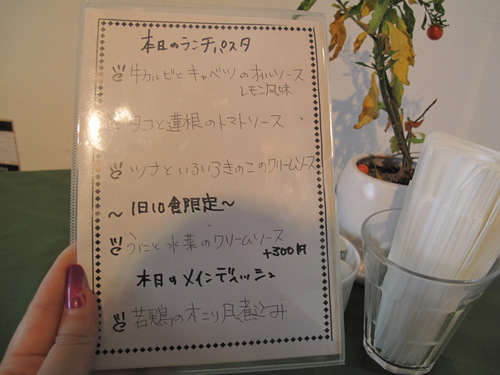 本日のランチパスタ
牛カルビとキャベツのオイルソース
レモン風味
タコと蓮根のトマトソース
ツナといろいろきのこのクリームソース
～1日10食限定～
うにと水菜のクリームソース
+300円
本日のメインディッシュ
若鶏の木こり風煮込み